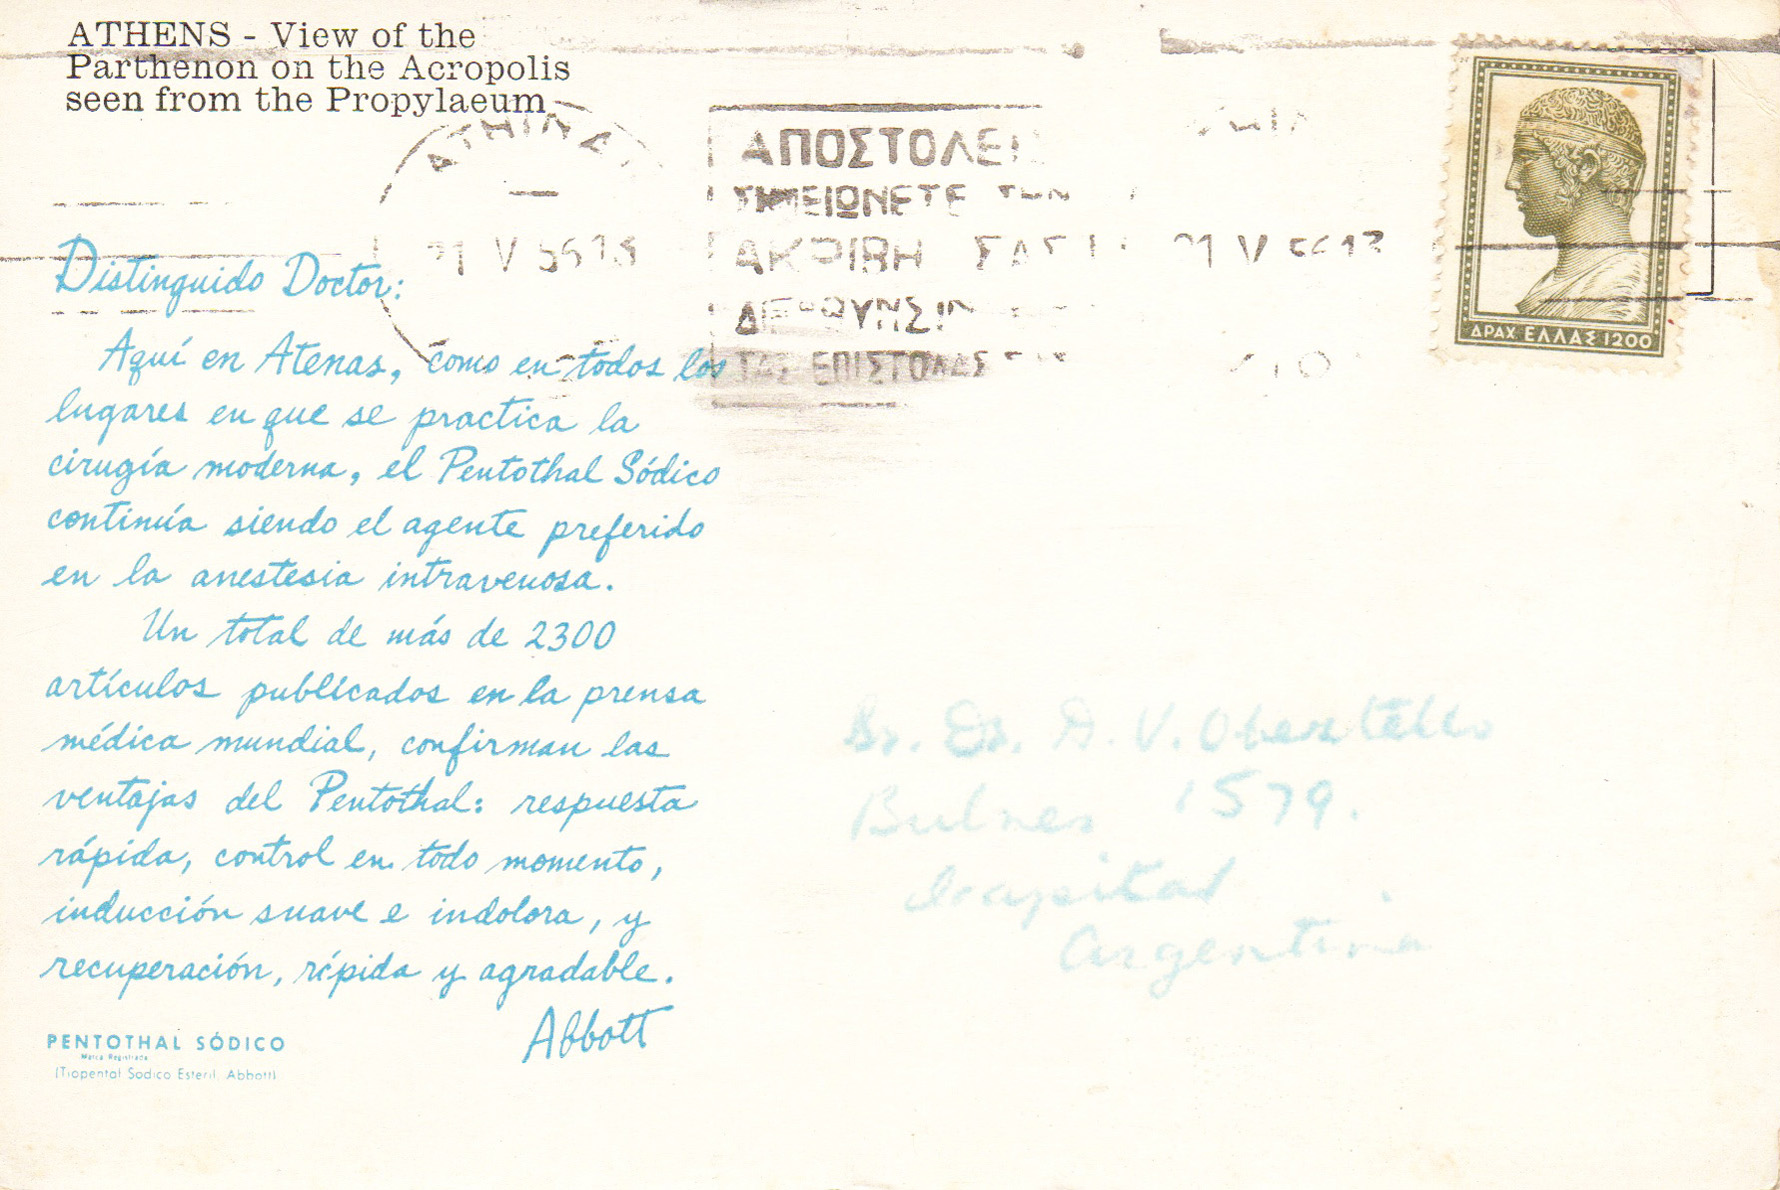 ATHENS - View of the
Parthenon on the Acropolis
seen from the Propylaeum
ATHINAI
21 V 56 13
ΑΠΟΣΤΟΛΕΙΣ
ΣΗΜΕΙΩΝΕΤΕ ΤΗΝ
ΑΚΡΙΒΗ ΣΑΣ
ΔΙΕΥΘΥΝΣΙΝ
ΤΑΣ ΕΠΙΣΤΟΛΑΣ ΣΑΣ
21 V 56 13
ΔΡΑΧ ΕΛΛΑΣ 1200
Distinguido Doctor:
Aquí en Atenas, como en todos los
lugares en que se practica la
cirugía moderna, el Pentothal Sódico
continúa siendo el agente preferido
en la anestesia intravenosa.
Un total de más de 2300
artículos publicados en la prensa
médica mundial, confirman las
ventajas del Pentothal: respuesta
rápida, control en todo momento,
inducción suave e indolora, y
recuperación, rápida y agradable.
Abbott
PENTOTHAL SÓDICO
Marca Registrada
(Tiopental Sodico Esteril, Abbott)
Sr. Dr. A. V. Obertello
Bulnes 1579.
Capital
Argentina